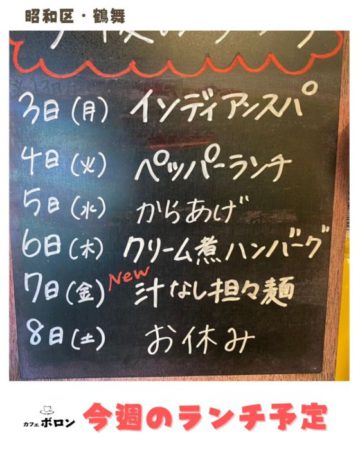 昭和区・鶴舞
3日(月) インディアンスパ
4日(火) ペッパーランチ
5日(水) からあげ
6日(木) クリーム煮ハンバーグ
New
7日(金) 汁なし担々麺
8日(土) お休み
カフェ ボロン 今週のランチ予定